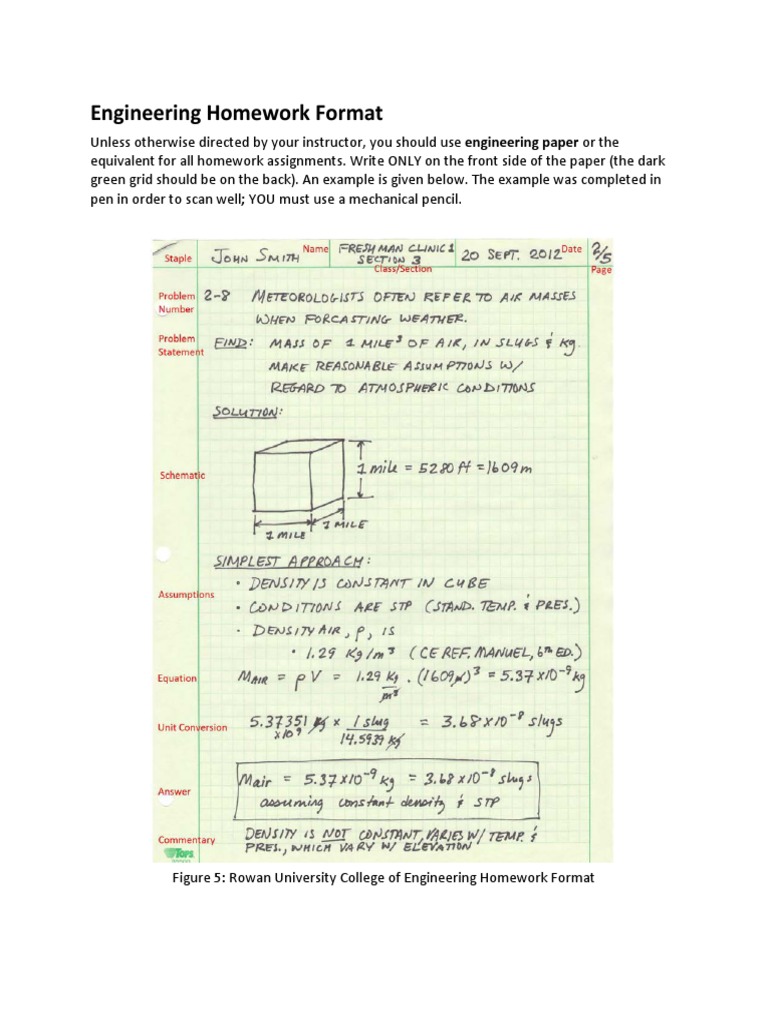 Engineering Homework Format
Unless otherwise directed by your instructor, you should use engineering paper or the
equivalent for all homework assignments. Write ONLY on the front side of the paper (the dark
green grid should be on the back). An example is given below. The example was completed in
pen in order to scan well; YOU must use a mechanical pencil.
Staple
JOHN SMITH Name FRESHMAN CLINIC 1 20 SEPT. 2012 Date 2/5
SECTION 3
Class/Section Page
Problem Number
2-8 METEOROLOGISTS OFTEN REFER TO AIR MASSES
WHEN FORCASTING WEATHER.
Problem Statement
FIND: MASS OF 1 MILE³ OF AIR, IN SLUGS & Kg.
MAKE REASONABLE ASSUMPTIONS W/
REGARD TO ATMOSPHERIC CONDITIONS
SOLUTION:
Schematic
1 mile = 5280 ft = 1609 m
1 MILE 1 MILE
SIMPLEST APPROACH:
Assumptions
• DENSITY IS CONSTANT IN CUBE
• CONDITIONS ARE STP (STAND. TEMP. & PRES.)
• DENSITY AIR, ρ, IS
• 1.29 Kg/m³ (CE REF. MANUEL, 6TH ED.)
Equation
MAIR = ρV = 1.29 Kg/m³ · (1609m)³ = 5.37x10⁻⁹ kg
Unit Conversion
5.37351 kg x 1 slug = 3.68x10⁻⁸ slugs
x10⁹ 14.5939 kg
Answer
Mair = 5.37x10⁻⁹ kg = 3.68x10⁻⁸ slugs
assuming constant density & STP
Commentary
DENSITY IS NOT CONSTANT, VARIES W/ TEMP. &
PRES., WHICH VARY W/ ELEVATION
TOPS
Figure 5: Rowan University College of Engineering Homework Format